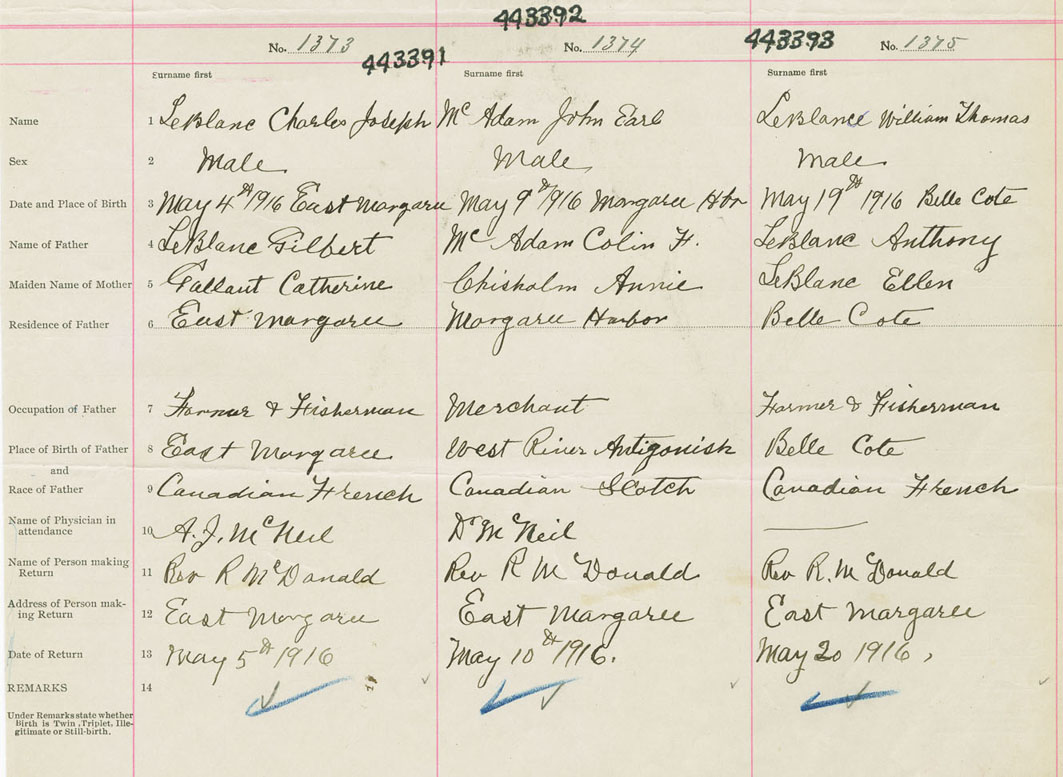 443392
No. 1373 No. 1374 443393 No. 1375
443391
Surname first Surname first Surname first
Name 1 LeBlanc Charles Joseph McAdam John Earl LeBlance William Thomas
Sex 2 Male Male Male
Date and Place of Birth 3 May 4th 1916 East Margaree May 9th 1916 Margaree Hbr May 19th 1916 Belle Cote
Name of Father 4 LeBlanc Gilbert McAdam Colin F. LeBlanc Anthony
Maiden Name of Mother 5 Gallant Catherine Chisholm Annie LeBlanc Ellen
Residence of Father 6 East Margaree Margaree Harbor Belle Cote
Occupation of Father 7 Farmer & Fisherman Merchant Farmer & Fisherman
Place of Birth of Father 8 East Margaree West River Antigonish Belle Cote
and
Race of Father 9 Canadian French Canadian Scotch Canadian French
Name of Physician in
attendance 10 A. J. McNeil Dr McNeil
Name of Person making
Return 11 Rev R McDonald Rev R McDonald Rev R. McDonald
Address of Person mak-
ing Return 12 East Margaree East Margaree East Margaree
Date of Return 13 May 5th 1916 May 10th 1916. May 20 1916,
REMARKS 14
Under Remarks state whether
Birth is Twin, Triplet, Ille-
gitimate or Still-birth.